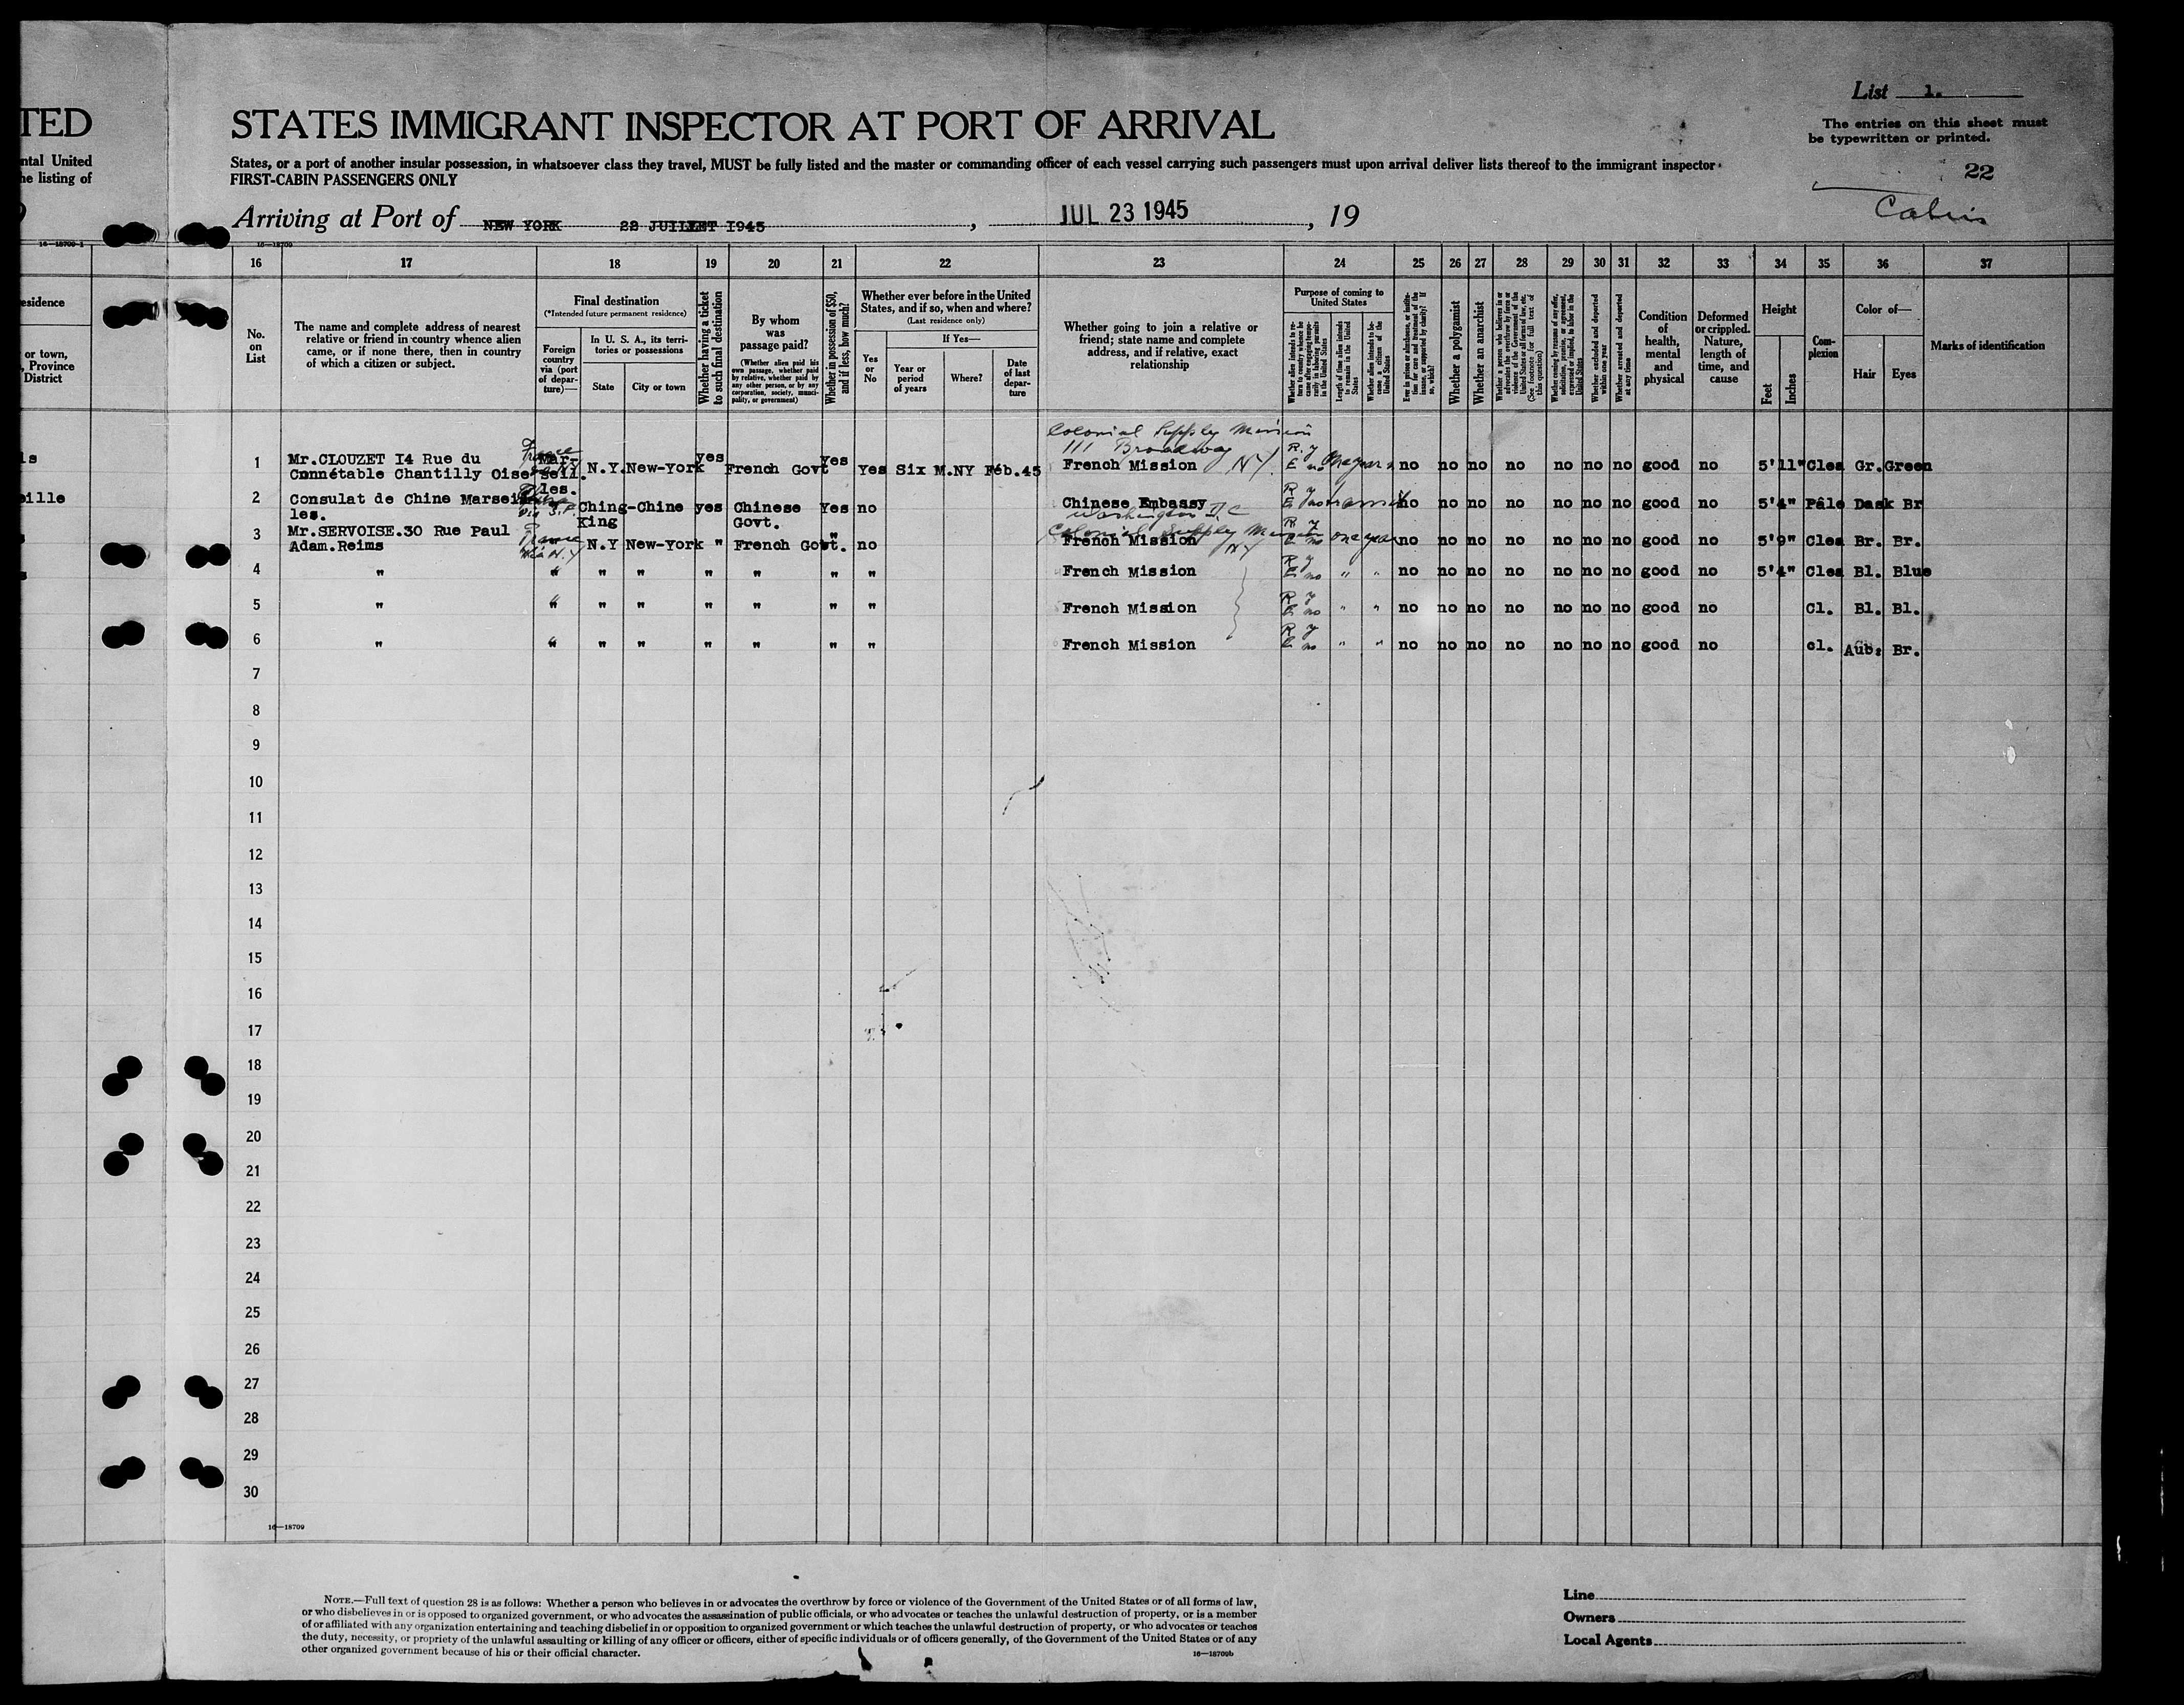 List 1.
TED
STATES IMMIGRANT INSPECTOR AT PORT OF ARRIVAL
The entries on this sheet must
be typewritten or printed.
ntal United
he listing of
States, or a port of another insular possession, in whatsoever class they travel, MUST be fully listed and the master or commanding officer of each vessel carrying such passengers must upon arrival deliver lists thereof to the immigrant inspector
FIRST-CABIN PASSENGERS ONLY
22
Cabin
Arriving at Port of NEW YORK 22 JUILLET 1945, JUL 23 1945, 19
16—18709-1
16—18709
16 17 18 19 20 21 22 23 24 25 26 27 28 29 30 31 32 33 34 35 36 37
esidence
or town,
, Province
District
No.
on
List
The name and complete address of nearest
relative or friend in country whence alien
came, or if none there, then in country
of which a citizen or subject.
Final destination
(*Intended future permanent residence)
Foreign
country
via (port
of depar-
ture)—
In U. S. A., its terri-
tories or possessions
State
City or town
Whether having a ticket
to such final destination
By whom
was
passage paid?
(Whether alien paid his
own passage, whether paid
by relative, whether paid by
any other person, or by any
corporation, society, munici-
pality, or government)
Whether in possession of $50,
and if less, how much?
Whether ever before in the United
States, and if so, when and where?
(Last residence only)
Yes
or
No
If Yes—
Year or
period
of years
Where?
Date
of last
depar-
ture
Whether going to join a relative or
friend; state name and complete
address, and if relative, exact
relationship
Purpose of coming to
United States
Whether alien intends to re-
turn to country whence he
came after engaging tempo-
rarily in laboring pursuits
in the United States
Length of time alien intends
to remain in the United
States
Whether alien intends to be-
come a citizen of the
United States
Ever in prison or almshouse, or institu-
tion for care and treatment of the
insane, or supported by charity? If
so, which?
Whether a polygamist
Whether an anarchist
Whether a person who believes in or
advocates the overthrow by force or
violence of the Government of the
United States or all forms of law, etc.
(See footnote for full text of
this question)
Whether coming by reason of any offer,
solicitation, promise, or agreement,
expressed or implied, to labor in the
United States
Whether excluded and deported
within one year
Whether arrested and deported
at any time
Condition
of
health,
mental
and
physical
Deformed
or crippled.
Nature,
length of
time, and
cause
Height
Feet
Inches
Com-
plexion
Color of—
Hair
Eyes
Marks of identification
Colonial Supply Mission
111 Broadway
N.Y.
1 Mr.CLOUZET I4 Rue du
Connétable Chantilly Oise
France
Mar-
seil.
les.
N.Y. New-York yes French Govt Yes Yes Six M. NY Féb.45 French Mission R. y E no One year no no no no no no no good no 5'11" Clea Gr. Green
ls
eille
2 Consulat de Chine Marseil
les.
China
via S.F.
Ching-Chine
King
yes Chinese
Govt.
Yes no Chinese Embassy
Washington D C
R y E no transit no no no no no no no good no 5'4" Pâle Dask Br
3 Mr.SERVOISE.30 Rue Paul
Adam.Reims
France
Via N.Y
N.Y New-York " French Govt. " no Colonial Supply Mission
French Mission
NY
R y E no one year no no no no no no no good no 5'9" Clea Br. Br.
4 " " " " " " " " French Mission R y E no " " no no no no no no no good no 5'4" Clea Bl. Blue
5 " " " " " " " " French Mission R y E no " " no no no no no no no good no Cl. Bl. Bl.
6 " " " " " " " " French Mission R y E no " " no no no no no no no good no cl. Aub. Br.
7
8
9
10
11
12
13
14
15
16
17
18
19
20
21
22
23
24
25
26
27
28
29
30
16—18709
NOTE.—Full text of question 28 is as follows: Whether a person who believes in or advocates the overthrow by force or violence of the Government of the United States or of all forms of law,
or who disbelieves in or is opposed to organized government, or who advocates the assassination of public officials, or who advocates or teaches the unlawful destruction of property, or is a member
of or affiliated with any organization entertaining and teaching disbelief in or opposition to organized government or which teaches the unlawful destruction of property, or who advocates or teaches
the duty, necessity, or propriety of the unlawful assaulting or killing of any officer or officers, either of specific individuals or of officers generally, of the Government of the United States or of any
other organized government because of his or their official character.
16—18709b
Line
Owners
Local Agents